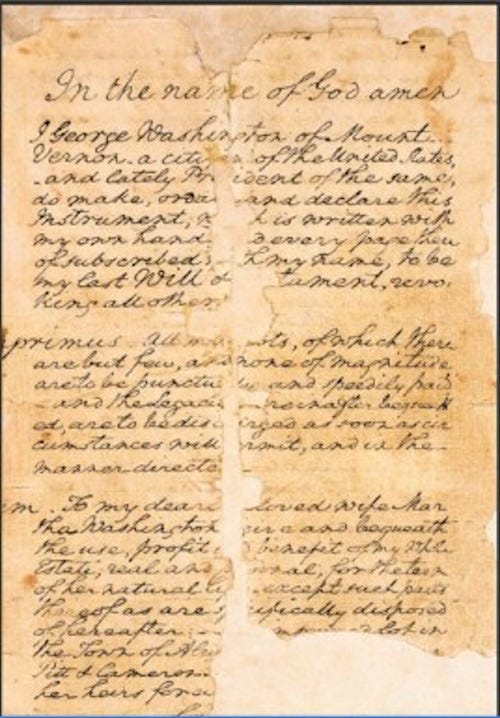 In the name of God amen
I George Washington of Mount
Vernon a citizen of the United States,
and lately Pr ident of the same,
do make, orda and declare this
Instrument, w h is written with
my own hand d every page there
of subscribed h my name, to be
my last Will & tament, revo
king all other
primus all my bts, of which there
are but few, and none of magnitude,
are to be punctu and speedily paid
and the Legacie reinafter bequeath
ed, are to be dis rged as soon as cir
cumstances will rmit, and in the
manner directe
em . To my dear loved wife Mar
tha Washington and bequeath
the use, profit benefit of my whole
Estate, real and onal, for the term
of her natural li except such parts
thereof as are s ifically disposed
of hereafter lot in
the Town of Alex
Pitt & Cameron
her heirs forev